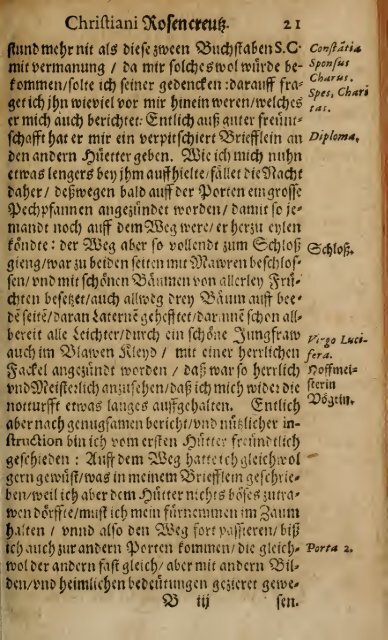 Christiani Rosencreutz. 21
stund mehr nit als diese zween Buchstaben S.C
mit vermanung / da mir solches wol würde be-
kommen / solte ich seiner gedencken : darauff fra-
get ich ihn wieviel vor mir hinein weren / welches
er mich auch berichtet: Entlich auß guter freünt-
schafft hat er mir ein verpitschiert Brieflein an
den andern Hüetter geben. Wie ich mich nuhn
etwas lengers bey ihm auffhielte / fället die Nacht
daher / deßwegen bald auff der Porten ein grosse
Pechpfannen angezündet worden / damit so je-
mandt noch auff dem Weg were / er herzu eylen
köndte : der Weg aber so vollendt zum Schloß
gieng / war zu beiden seitten mit Mawren beschlos-
sen / und mit schönen Bäumen von allerley Frü-
chten besetzet / auch allweg drey Bäum auff bee-
dē seitē / daran Laternē gehefftet / darinnē schon all-
bereit alle Liechter / durch ein schöne Jungfraw
auch im Blawen Kleyd / mit einer herrlichen
Fackel angezündt worden / daß war so herrlich
vnd Meisterlich anzusehen / daß ich mich wider die
notturfft etwas langes auffgehalten. Entlich
aber nach genugsamen bericht / vnd nützlicher in-
struction bin ich vom ersten Hütter freündtlich
gescheiden : Auff dem Weg hatte ich gleichwol
gern gewüst / was in meinem Brieflein geschrie-
ben / weil ich aber dem Hütter nichts böses zutra-
wen dörffte / must ich mein fürnemmen im Zaum
halten / vnnd also den Weg fort passieren / biß
ich auch zur andern Porten kommen / die gleich-
wol der andern fast gleich / aber mit andern Bil-
den / vnd heimlichen bedeütungen gezieret gewe-
B iij sen.
Constātia
Sponsus
Charus.
Spes, Chari
tas.
Diploma.
Schloß.
Virgo Luci-
fera.
Hoffmei-
sterin
Vögtin.
Porta 2.